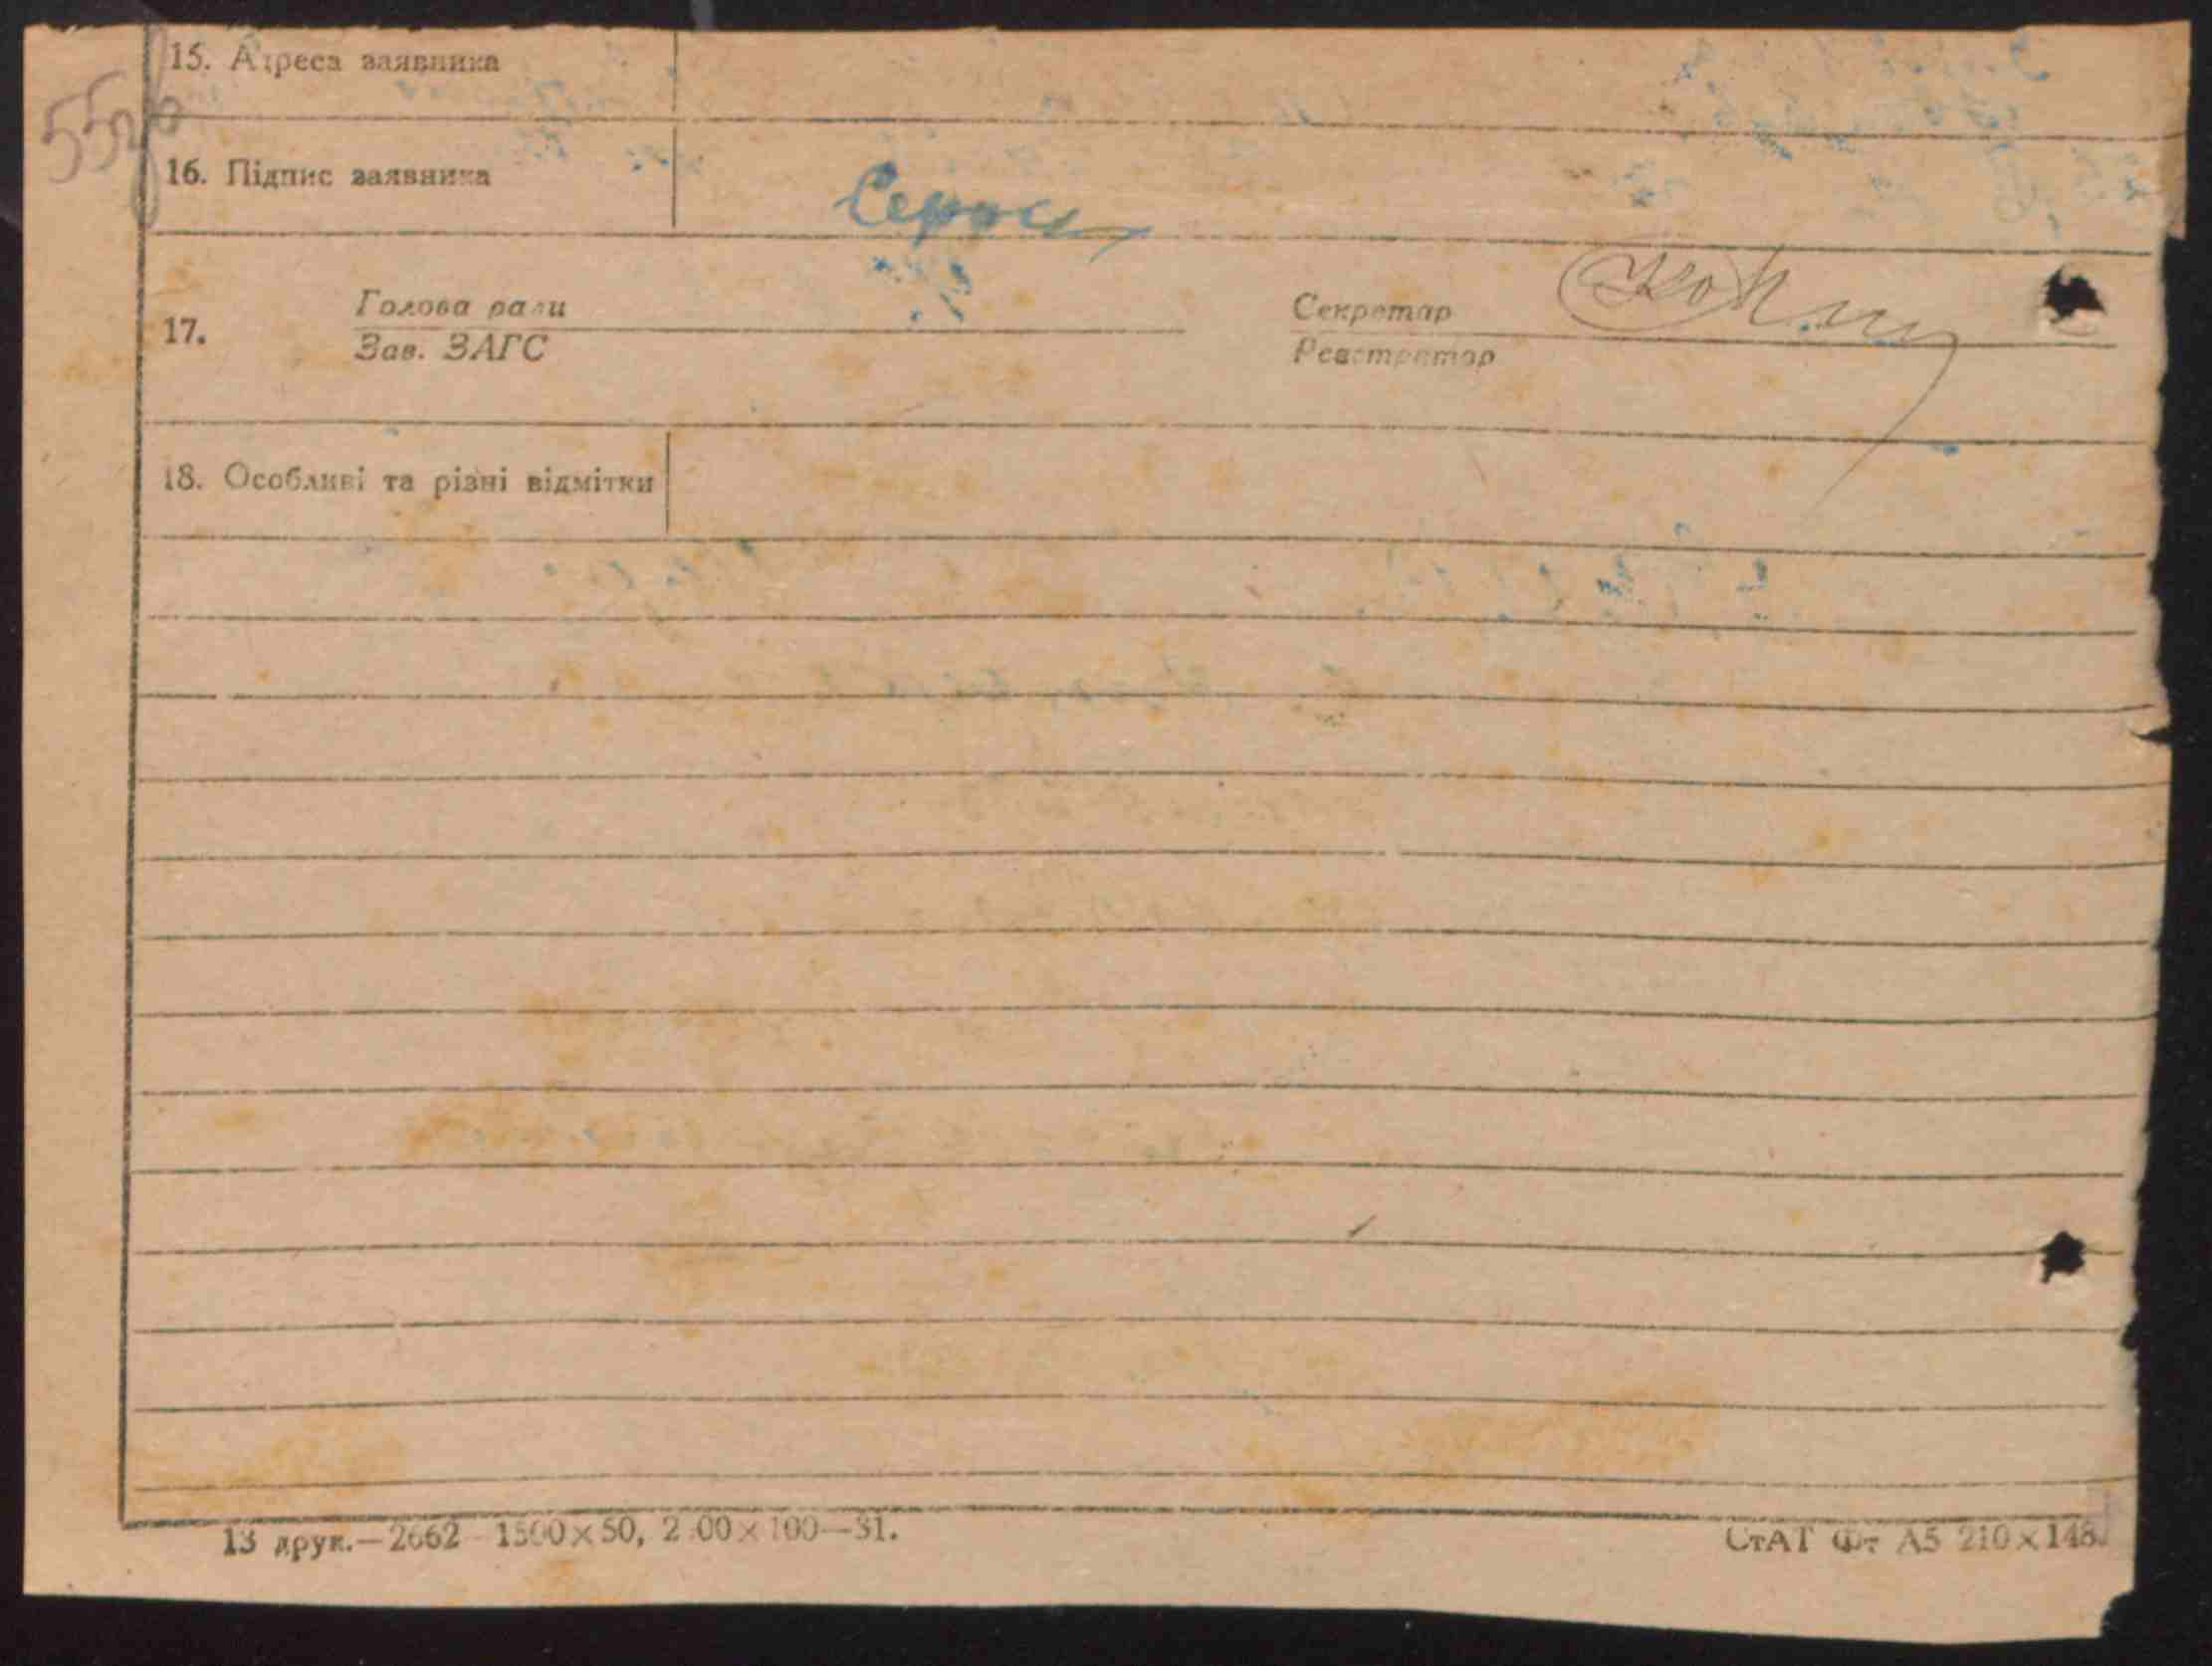 15. Адреса заявника
16. Підпис заявника
17. Голова ради
Зав. ЗАГС
Секретар
Реєстратор
18. Особливі та різні відмітки
13 друк.—2662 1500×50, 2 00×100—31.
СтАТ Фт А5 210×148.